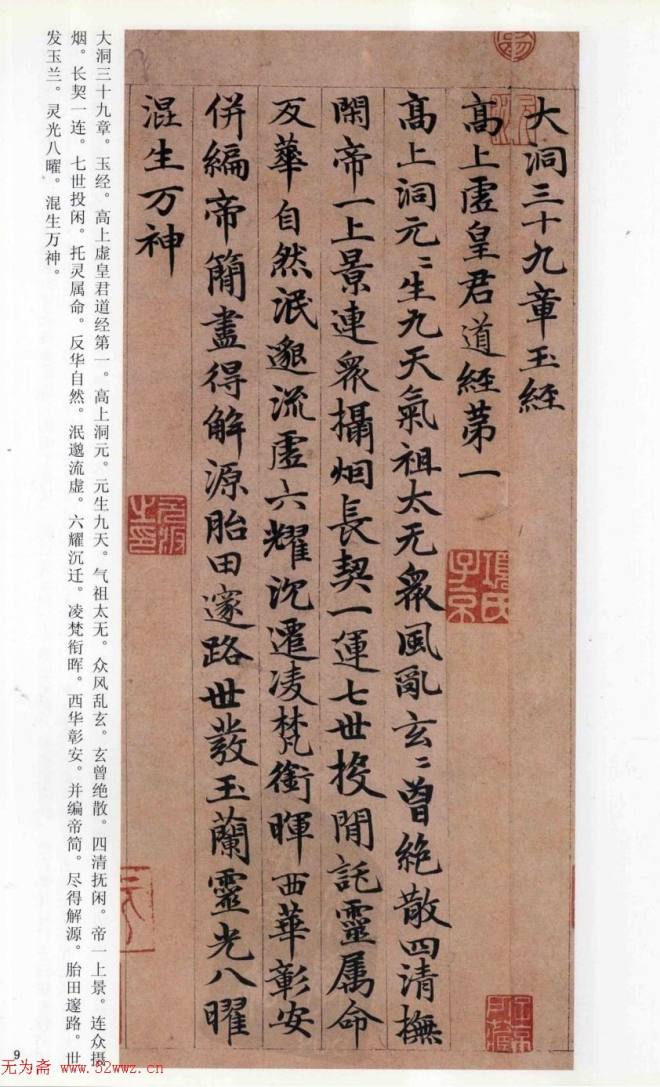 大洞三十九章玉經
髙上虛皇君道經第一
髙上洞元〻生九天氣祖太无衆風亂玄〻曾絶散四清撫
閑帝一上景連衆攝烟長契一運七世投閑託靈属命
反華自然泯邈流虛六耀沉遷凌梵銜暉西華彰安
併編帝簡盡得解源胎田邃路世發玉蘭靈光八曜
混生万神
項氏子京
大洞三十九章。玉经。高上虚皇君道经第一。高上洞元。元生九天。气祖太无。众风乱玄。玄曾绝散。四清抚闲。帝一上景。连众摄
烟。长契一连。七世投闲。托灵属命。反华自然。泯邈流虚。六耀沉迁。凌梵衔晖。西华彰安。并编帝简。尽得解源。胎田邃路。世
发玉兰。灵光八曜。混生万神。
9
无为斋 www.52wwz.cn